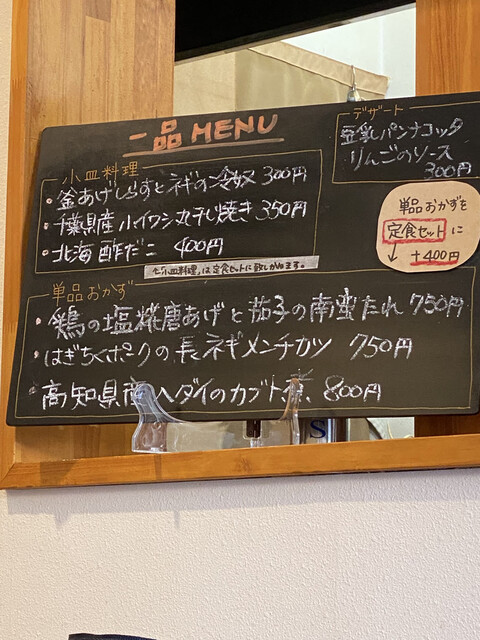 一品 MENU
小皿料理
・釜あげしらすとネギの冷奴 300円
・千葉県産小イワシ丸干し焼き 350円
・北海酢だこ 400円
は定食セットに致しかねます。
デザート
豆乳パンナコッタ
りんごのソース
300円
単品おかずを
定食セットに
↓ +400円
単品おかず
・鶏の塩糀唐あげと茄子の南蛮たれ 750円
・はぎちくポークの長ネギメンチカツ 750円
・高知県産ヘダイのカブト 800円
S